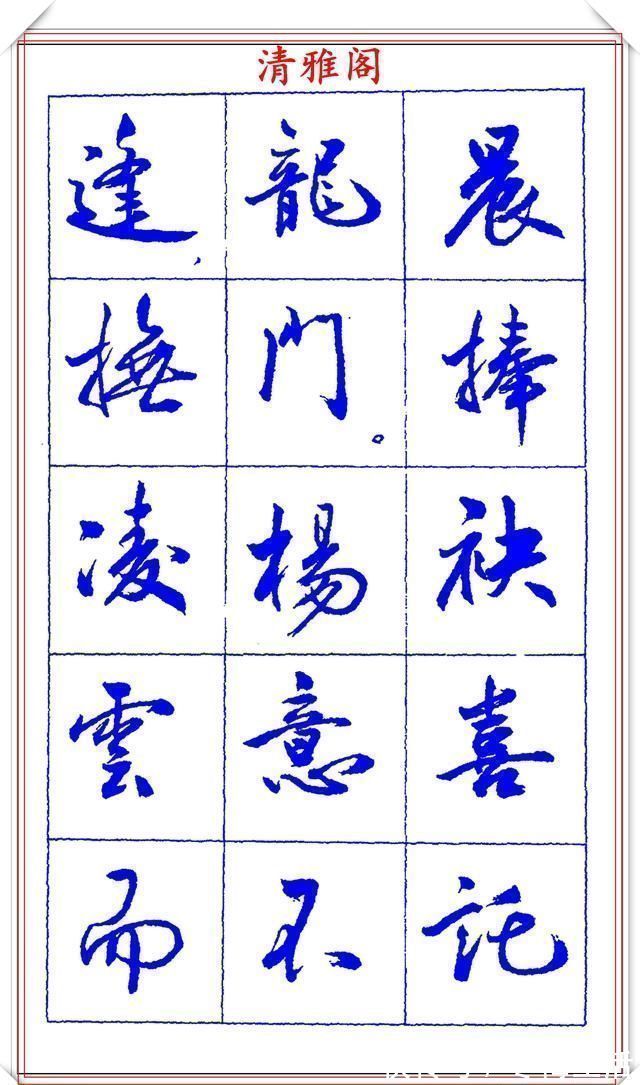 清雅阁
晨捧袂喜託
龍門。楊意不
逢，撫凌雲而